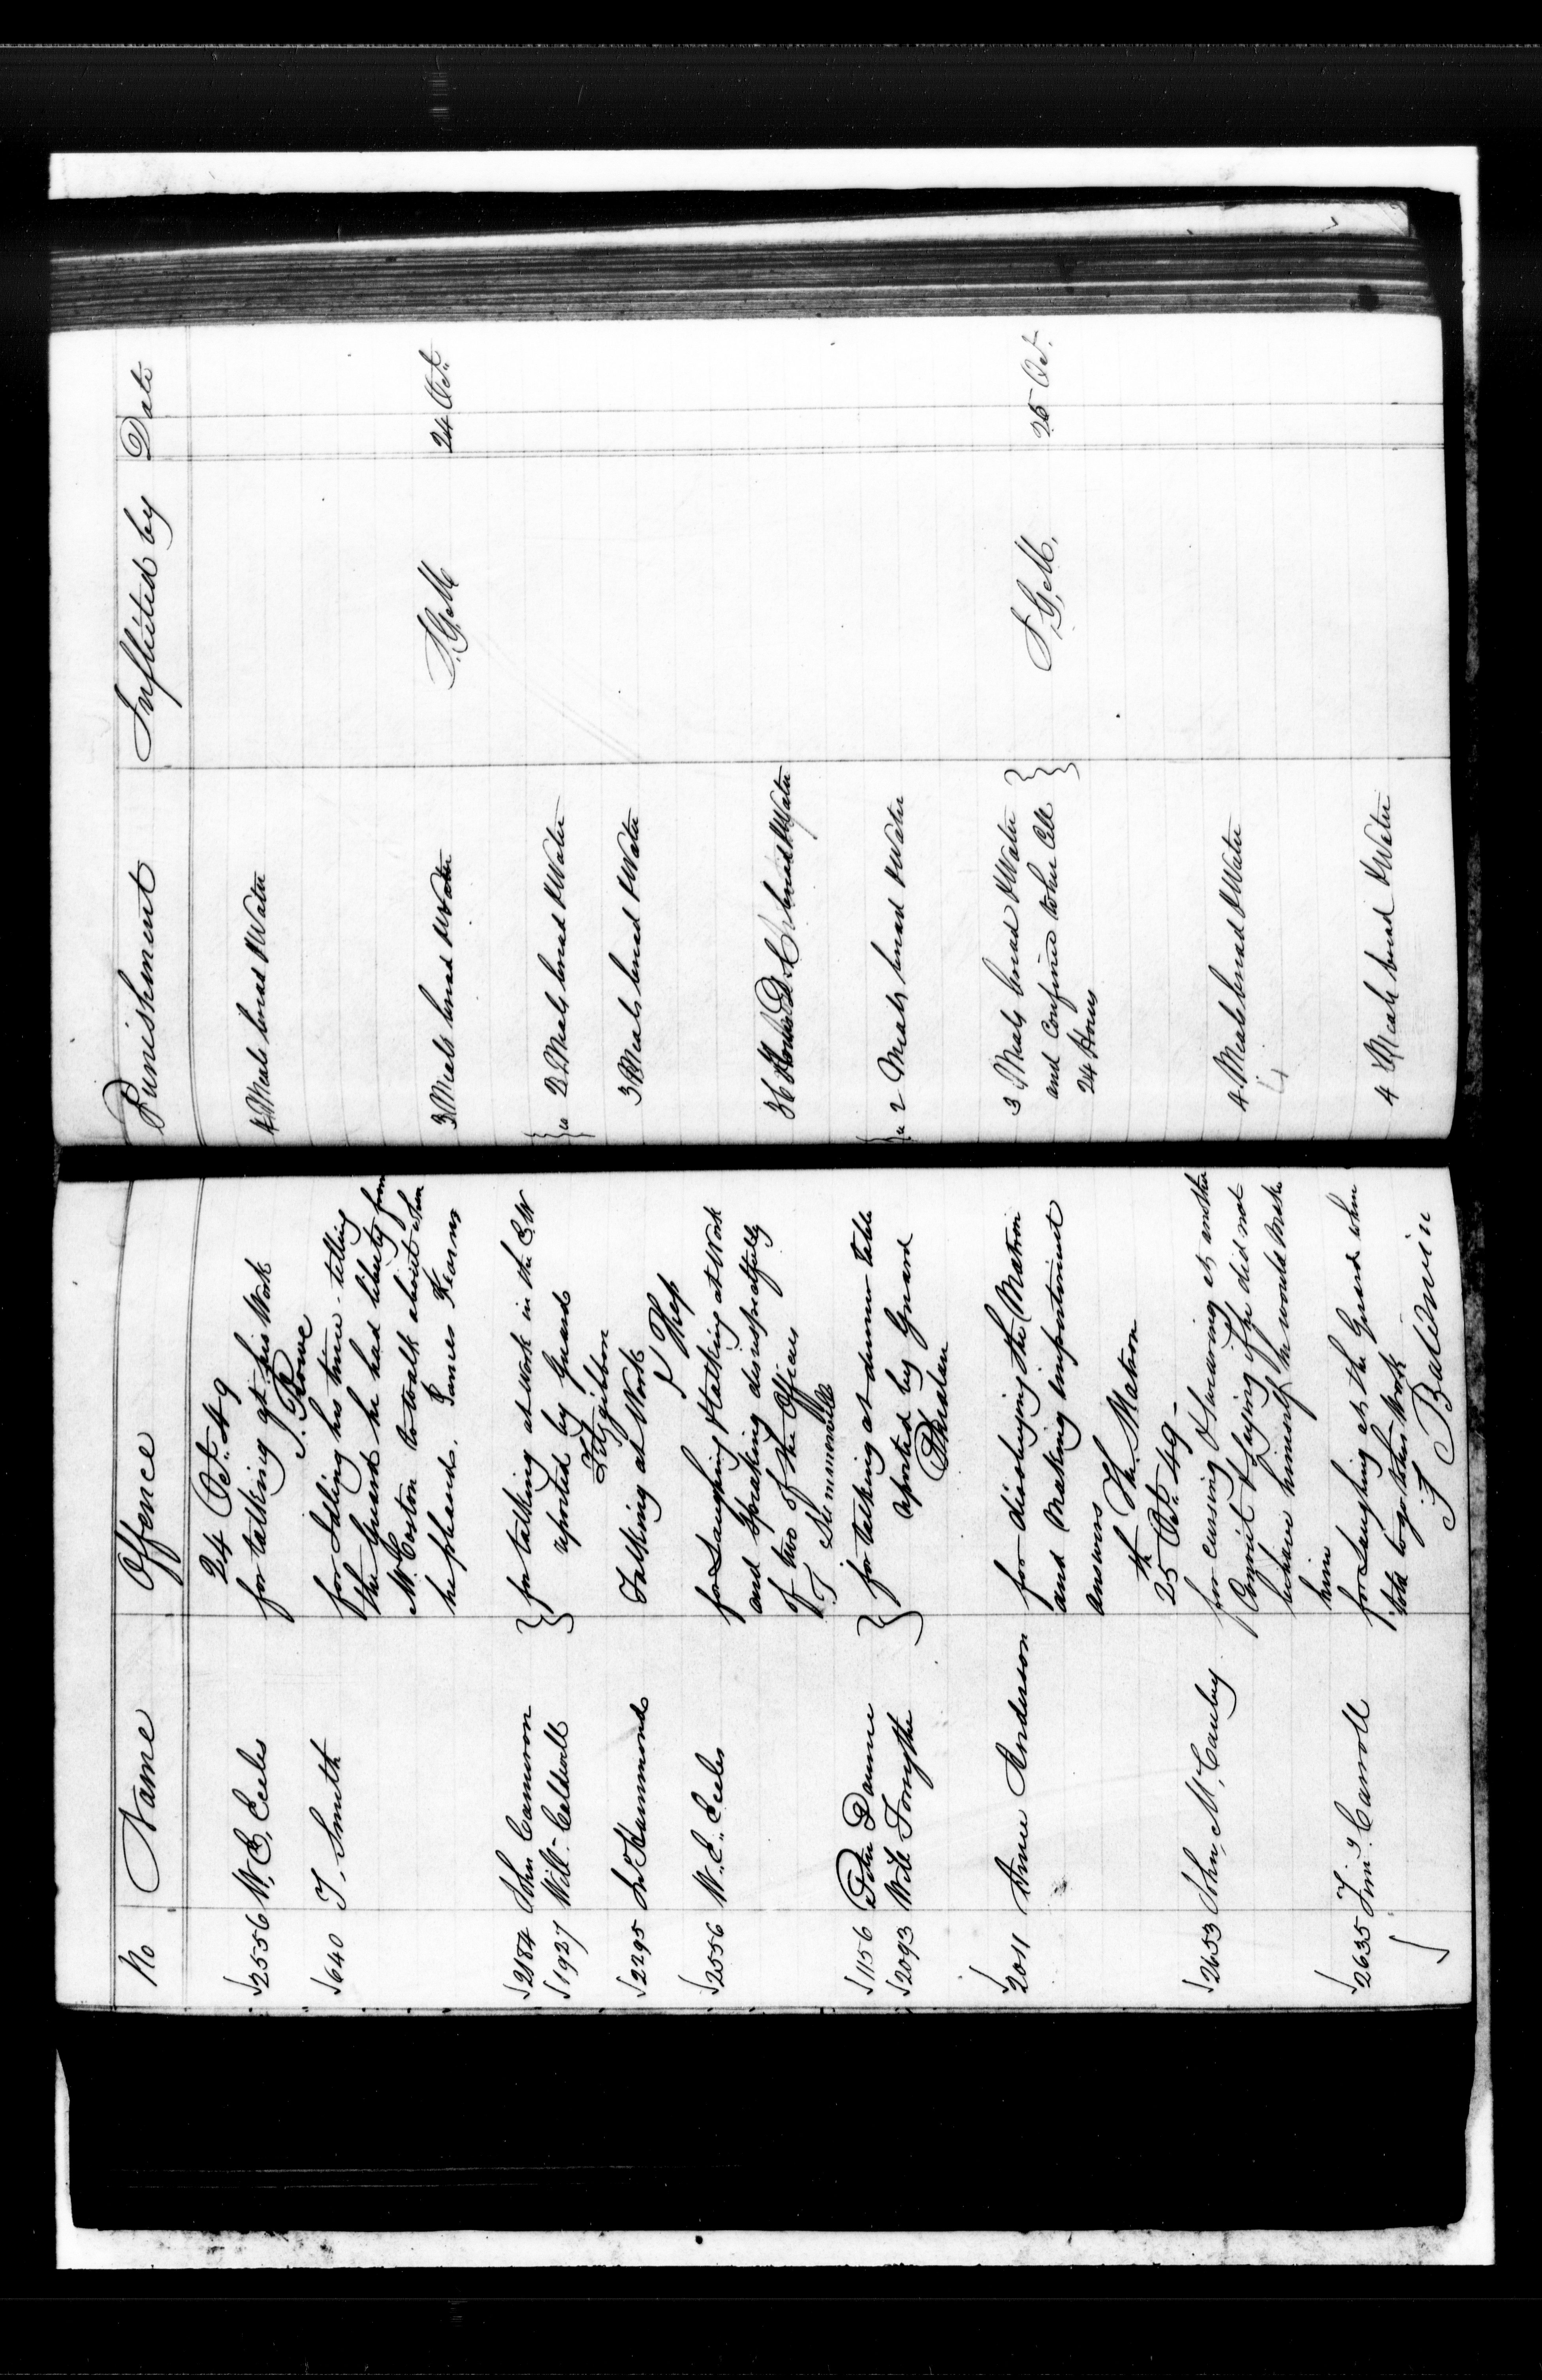 No Name Offence Punishment Inflicted by Date
24 Oct. 49
2556 W. E. Eeles for talking at his Work 4 Meals bread & Water
J. Rowe
640 T. Smith for Idling his time - telling
the Guard he had liberty from
Mc Coston to walk about when
he pleased. James Kearns 3 Meals bread & Water S. G. M 24 Oct.
2184 John Cameron } for talking at work in the E. W
1927 Will. Caldwell } reported by Guard } ea 2 Meals bread & Water
Fitzgibbon
2295 Jno Hammond Talking at Work 3 Meals bread & Water
2556 W. E. Eeles for Laughing & talking at Work
and Speaking disrespectfully 36 Hours D. C. bread & Water
of two of the Officers
T Summerville
1156 Peter Daunne } for talking at dinner table } ea 2 Meals bread & Water
2093 Will Forsythe } reported by Guard
Phealan
2011 Anne Anderson for disobeying the Matron 3 Meals bread & Water }
and Making impertinent and Confined to her Cell } S. G. M. 25 Oct.
answers The Matron 24 Hours
25th Oct. 49 -
2653 John McCauley for cursing & swearing at another
Convict & Saying if he did not 4 Meals bread & Water
behave himself he would make
him
2635 Timy. Carroll for Laughing at the Guard when
told to go to his Work 4 Meals bread & Water
J Baldwin